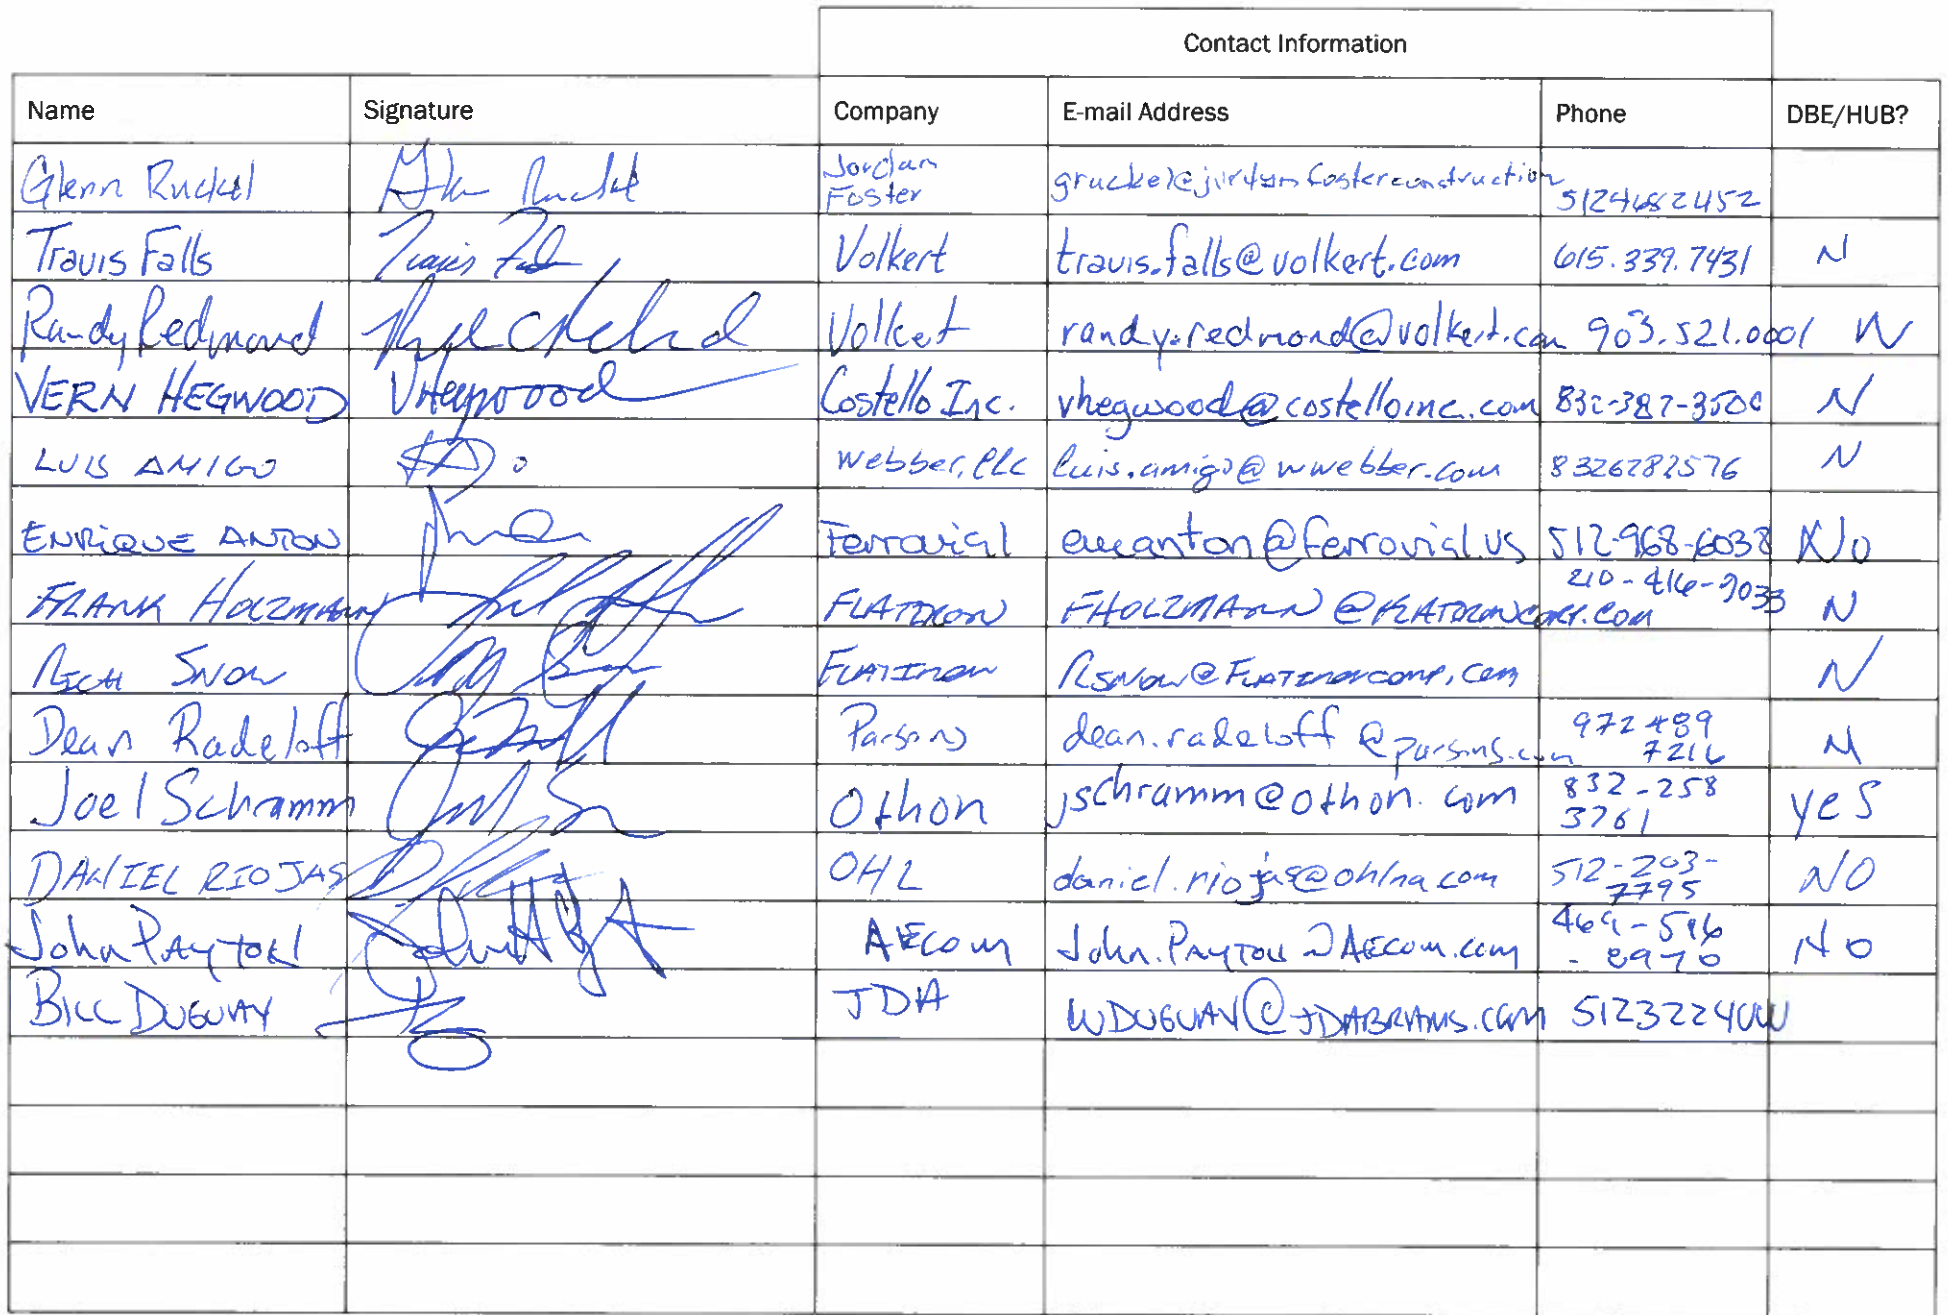 Contact Information
Name Signature Company E-mail Address Phone DBE/HUB?
Glenn Ruckel Jordan Foster gruckel@jordanfosterconstruction 5124682452
Travis Falls Volkert travis.falls@volkert.com 615.339.7431 N
Randy Redmond Volkert randy.redmond@volkert.com 903.521.0001 N
VERN HEGWOOD VHegwood Costello Inc. vhegwood@costelloinc.com 832-387-3500 N
LUIS AMIGO Webber, LLC luis.amigo@wwebber.com 8326282576 N
ENRIQUE ANTON Ferrovial @ferrovial.us 512-968-6038 No
FRANK HOLZMANN FLATIRON FHOLZMANN@FLATIRONCORP.COM 210-416-9033 N
RICH SNOW FLATIRON RSNOW@FLATIRONCORP.COM N
Dean Radeloff Parsons dean.radeloff@parsons.com 972 489 7216 N
Joel Schramm Othon jschramm@othon.com 832-258 3761 yes
DANIEL RIOJAS OHL daniel.riojas@ohlna.com 512-203-7795 NO
John PAYTON AECOM John.PAYTON@AECOM.com 469-596-8970 NO
BILL DUGUAY JDA WDUGUAY@JDABRAMS.COM 5123224000